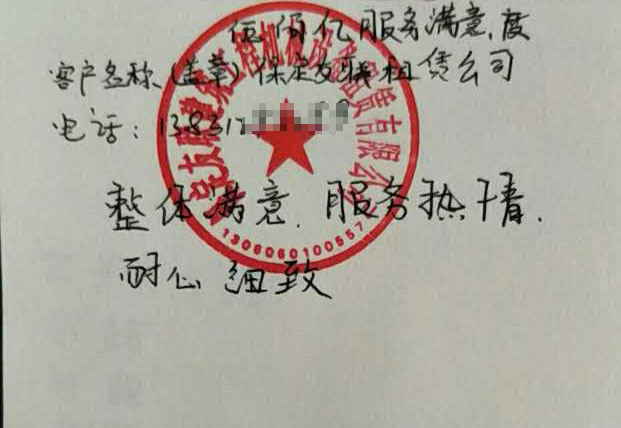 服务满意度
客户名称(盖章)保定友联租赁公司
电话:1383
整体满意.服务热情.
耐心细致
租赁有限公司
1306060100557